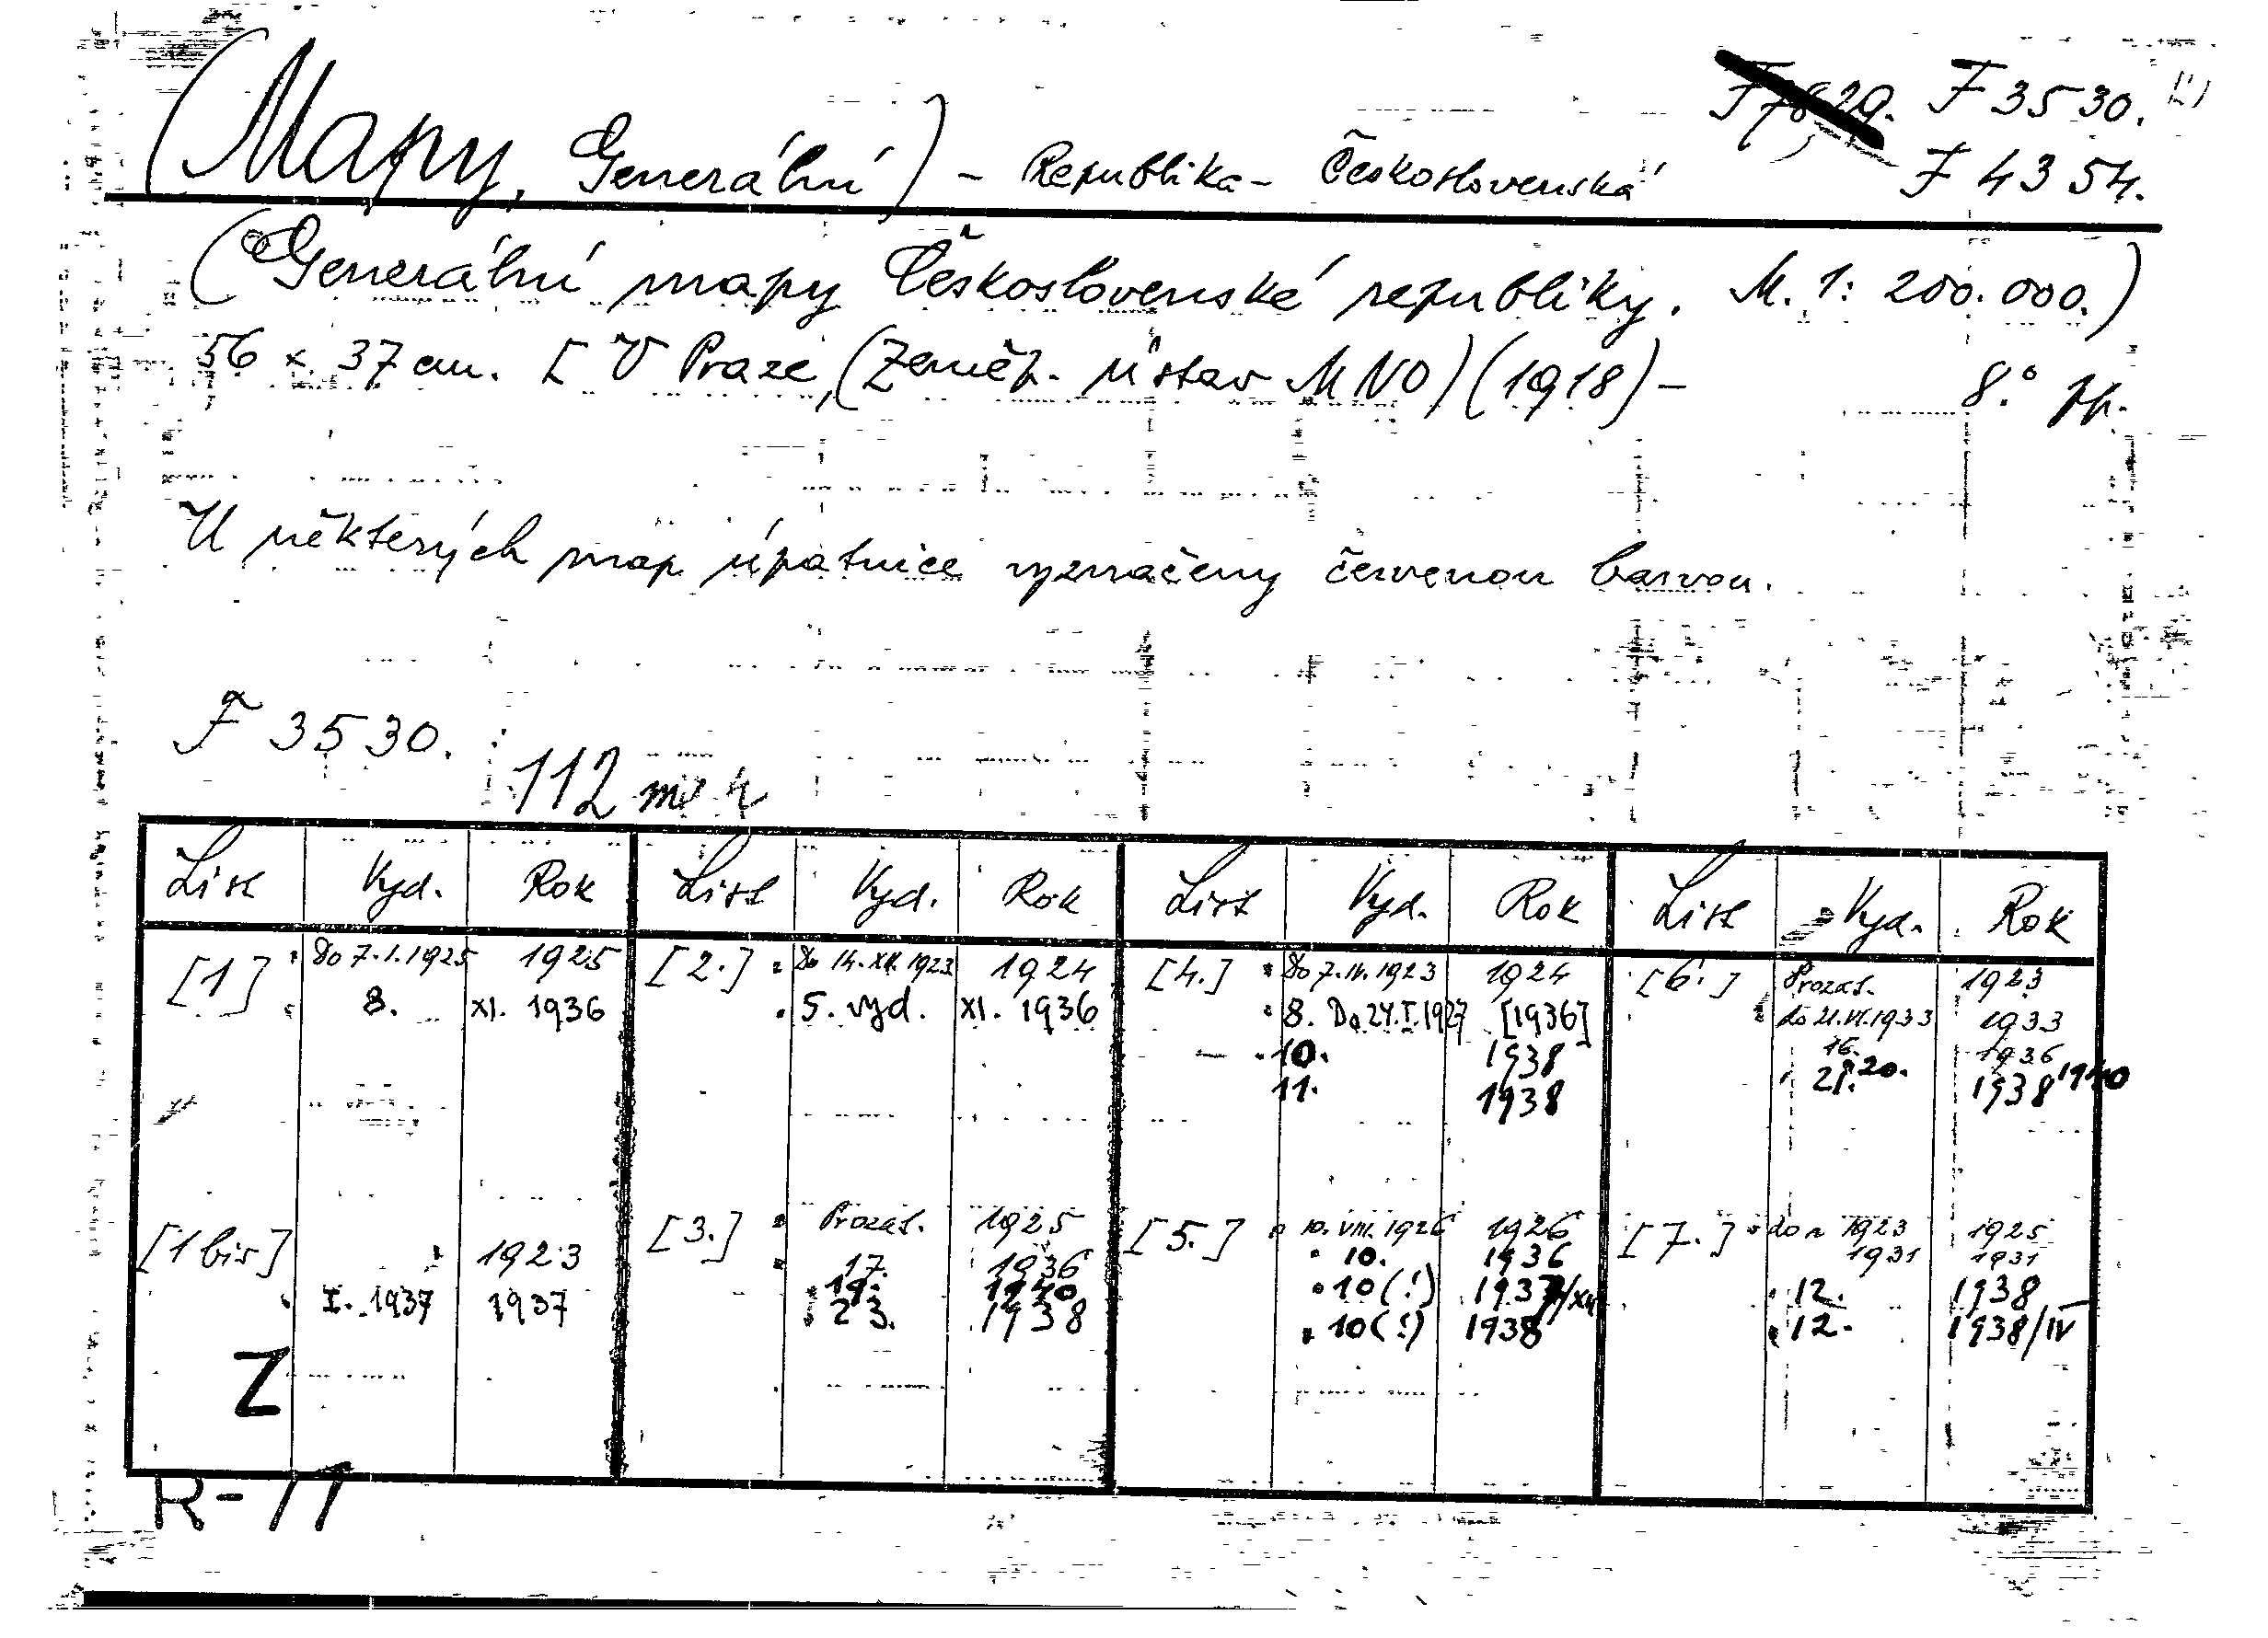 (Mapy, Generální) - Republika - Československá F 3530.
F 4354.
(Generální mapy Československé republiky. M. 1: 200.000.)
56 x 37 cm. [V Praze, (Zeměp. ústav MNO) (1918) - 8.°
U některých map úpatnice vyznačeny červenou barvou.
F 3530.
112
List Vyd. Rok List Vyd. Rok List Vyd. Rok List Vyd. Rok
[1] Do 7.I.1925 1925 [2.] Do 14.XII.1923 1924 [4.] Do 7.IV.1923 1924 [6.] Prozat. 1923
8. XI. 1936 5. vyd. XI. 1936 8. Do 24.I.1927 [1936] do 21.VI.1933 1933
10. 1938 16. 1936
11. 1938 21. 20. 1938 1940
[1 bis] 1923 [3.] Prozat. 1925 [5.] 10. VIII. 1926 1926 [7.] do 1923 1925
17. 1936 10. 1936 1931 1931
I. 1937 1937 19. 1940 10(!) 1937/XII 12. 1938
23. 1938 10(!) 1938 12. 1938/IV
Z
R-11